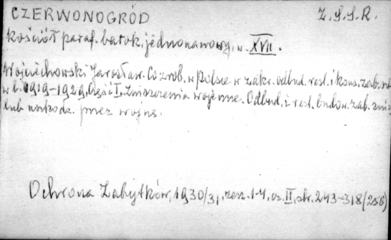 CZERWONOGRÓD Z.S.S.R.
kościół paraf. barok, jednonawowy, w. XVII.
Wojciechowski Jarosław. Co zrob. w Polsce w zakr. odbud. rest. i kons. zab. szt.
w l. 1919-1929, Część I. Zniszczenia wojenne. Odbud. i rest. budow. zab. znis
lub uszkodz. przez wojnę.
Ochrona Zabytków, 1930/31, zesz. 1-4, cz. II, str. 243-318/(256)